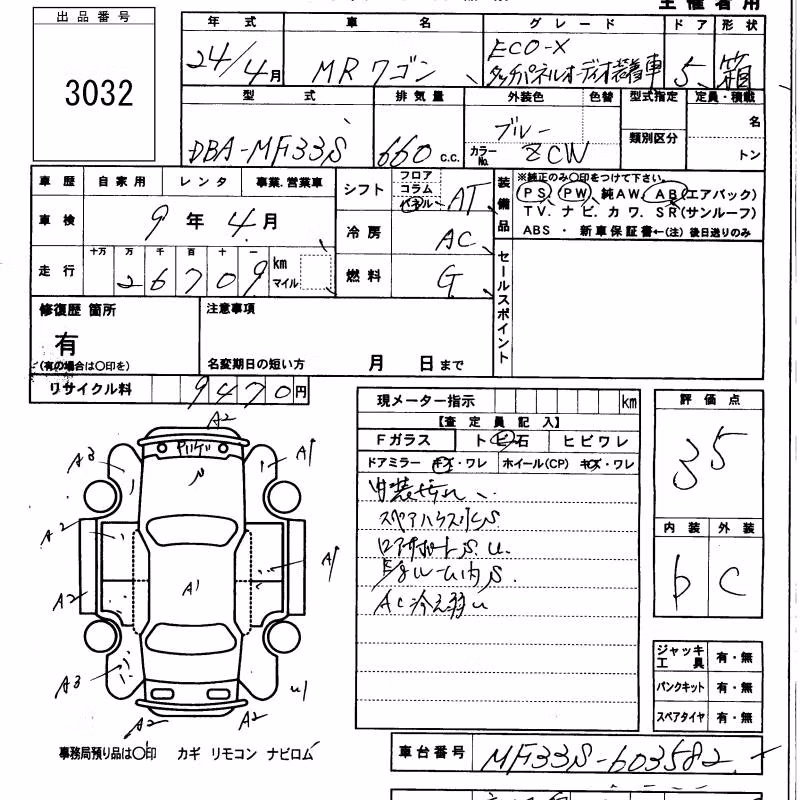 主催者用
出品番号
3032
年式 車名 グレード ドア 形状
24/4月 MRワゴン ECO-X 5 箱
タッチパネルオーディオ装着車
型式 排気量 外装色 色替 型式指定 定員・積載
DBA-MF33S 660 c.c. ブルー 類別区分 名
カラーNo. ZCW トン
車歴 自家用 レンタ 事業.営業車
車検 9年4月
走行 十万 万 千 百 十 一
26709 km マイル
シフト フロア コラム パネル AT
冷房 AC
燃料 G
装備品 ※純正のみ〇印をつけて下さい。
PS PW 純AW. AB(エアバック)
TV. ナビ. カワ. SR(サンルーフ)
ABS ・ 新車保証書←(注) 後日送りのみ
セールスポイント
修復歴 箇所
有
(有の場合は〇印を)
注意事項
名変期日の短い方 月 日まで
リサイクル料 9470円
現メーター指示 km
【査定員記入】
Fガラス トビ石 ヒビワレ
ドアミラー キズ・ワレ ホイール(CP) キズ・ワレ
内装汚れ
AC冷え弱い
評価点
35
内装 外装
b C
ジャッキ工具 有・無
パンクキット 有・無
スペアタイヤ 有・無
A2
A3 A1
A2 A1
A1
A2
A3 U1
A2 A2
事務局預り品は〇印 カギ リモコン ナビロム
車台番号 MF33S-603582